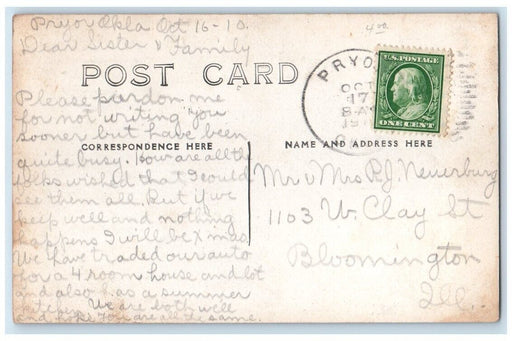 Pryor Okla Oct 16-10.
Dear Sister & Family
POST CARD
PRYO
OCT
17
8 A
19
U.S. POSTAGE
ONE CENT
CORRESPONDENCE HERE
Please pardon me
for not writing you
sooner but have been
quite busy. How are all the
folks wished that I could
see them all. But if we
keep well and nothing
happens I will be Xmas
We have traded our auto
for a 4 room house and lot
and also has a summer
kitchen. We are both well
and hope you are all the same.
NAME AND ADDRESS HERE
Mr & Mrs P.J. Neuerburg
1103 W. Clay St
Bloomington
Ill.